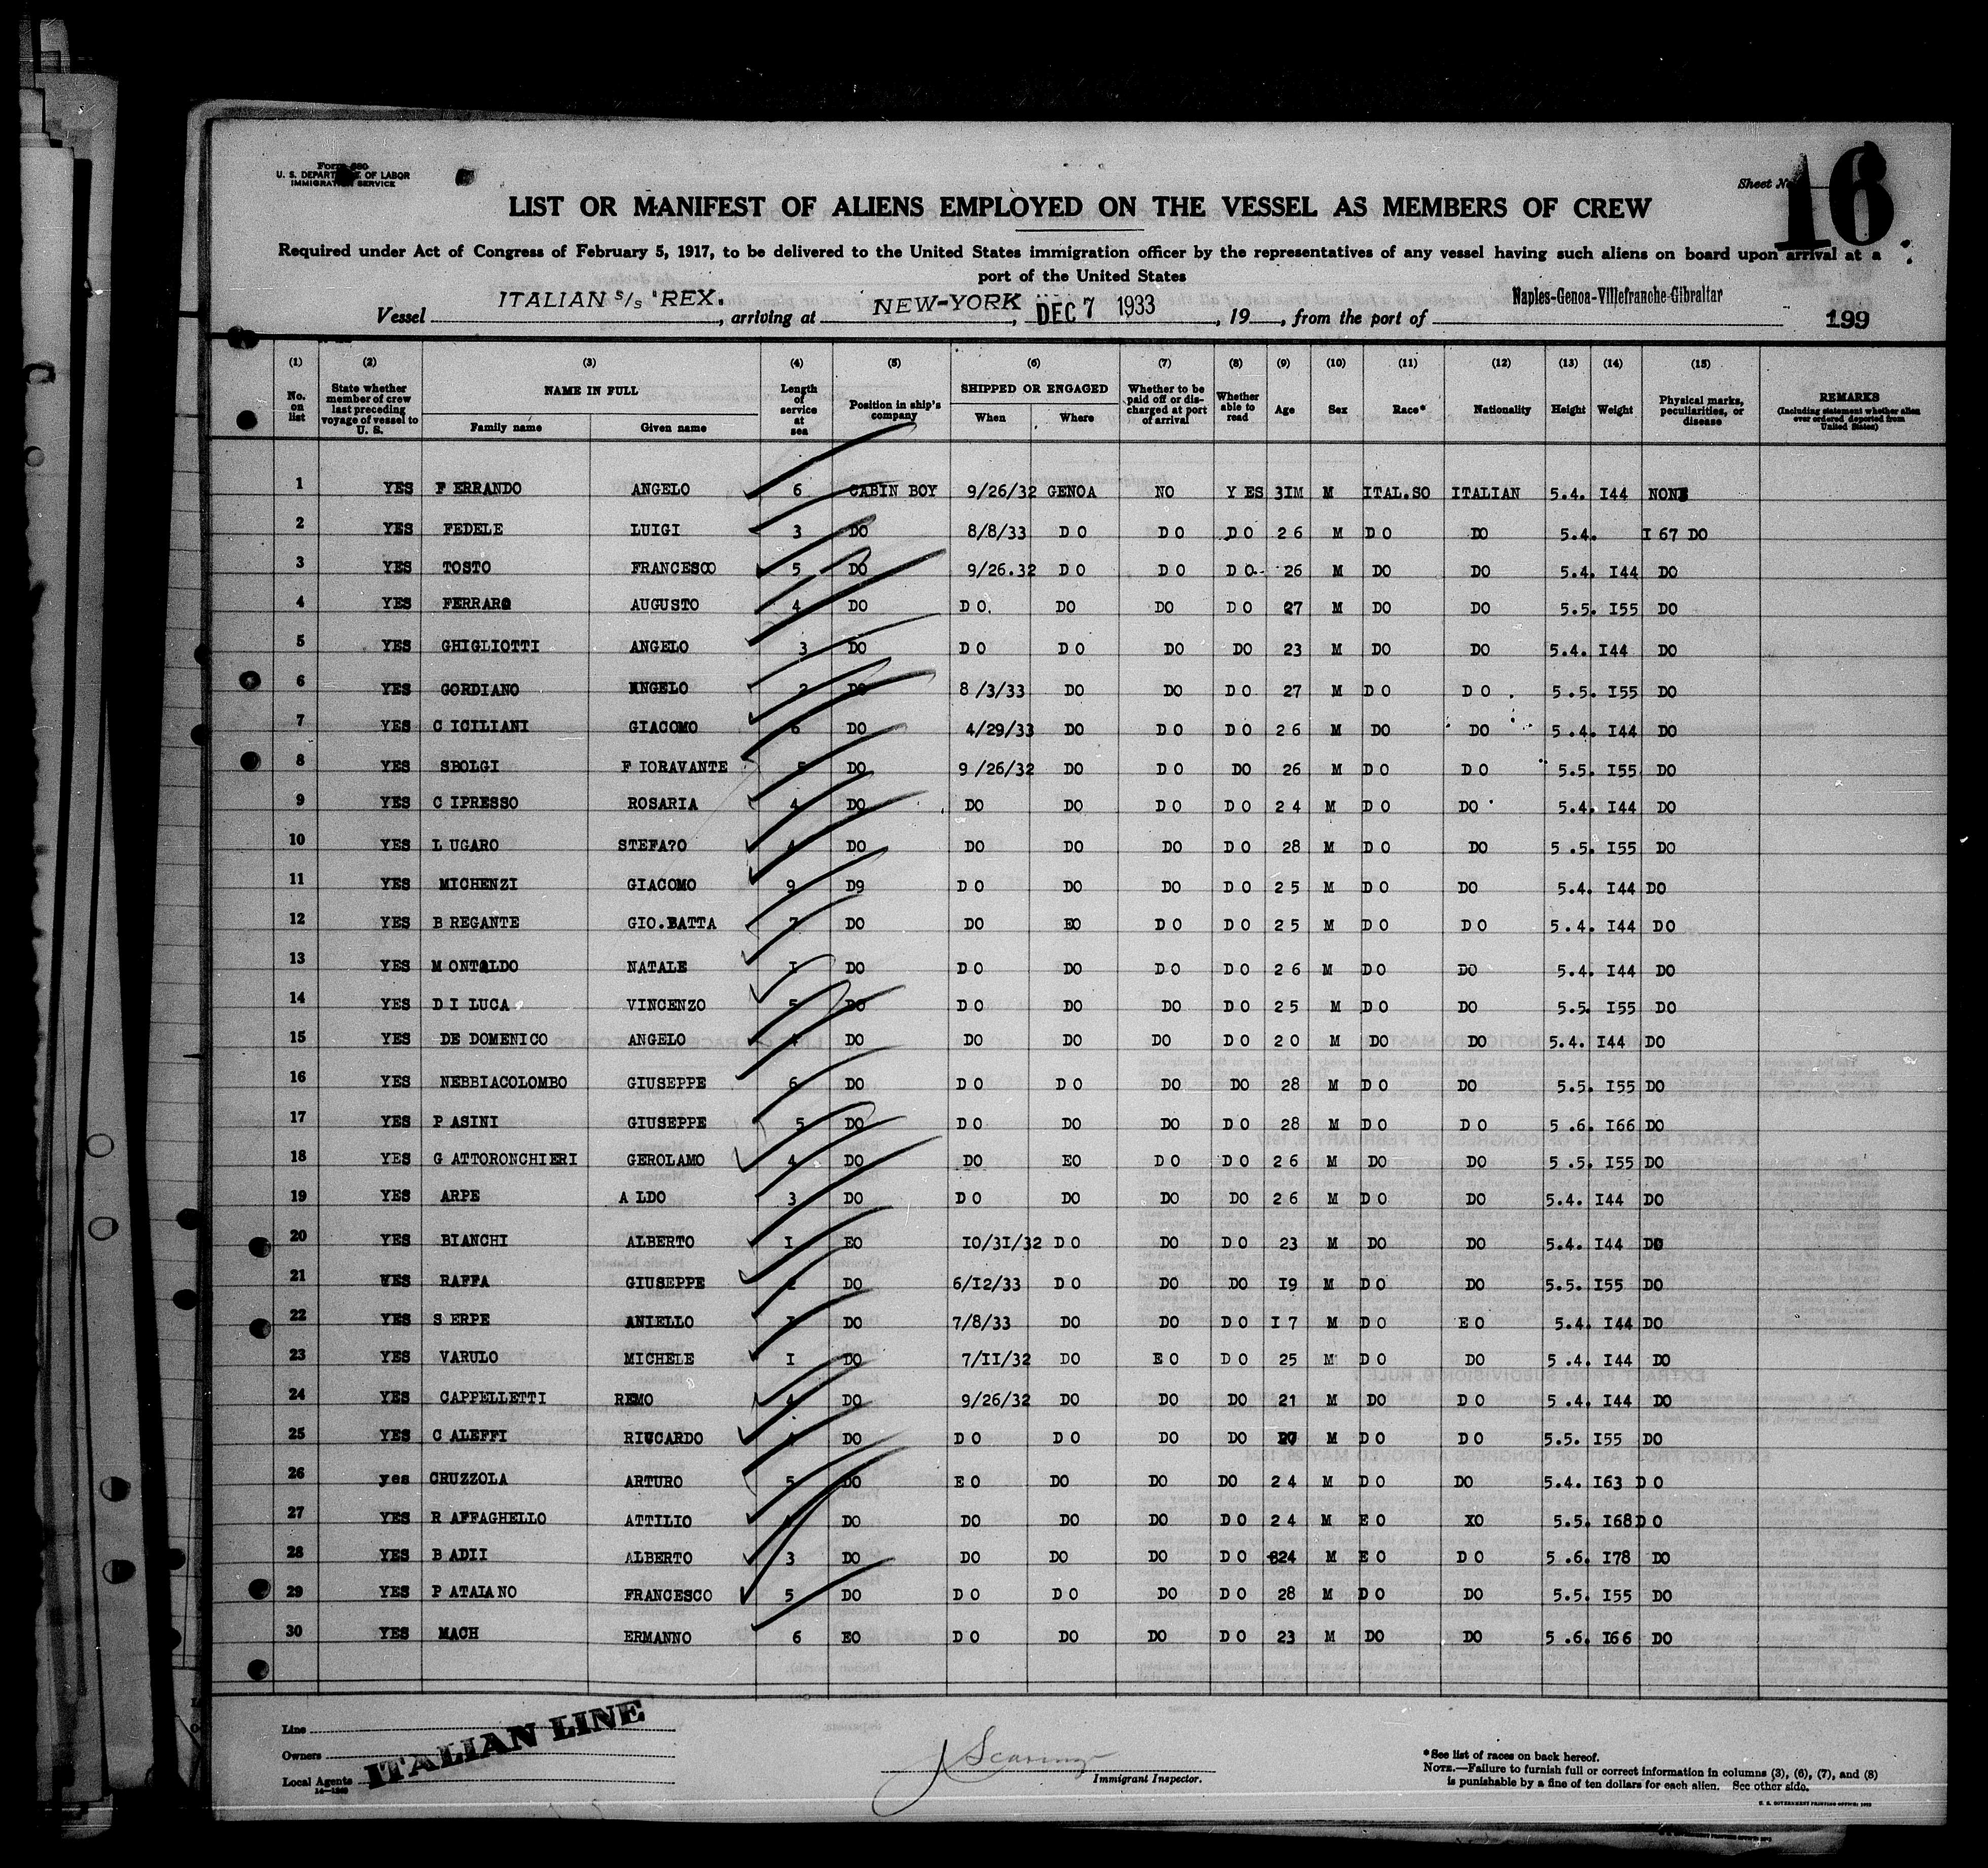 Form 680
U. S. DEPARTMENT OF LABOR
IMMIGRATION SERVICE
Sheet No. 16
LIST OR MANIFEST OF ALIENS EMPLOYED ON THE VESSEL AS MEMBERS OF CREW
Required under Act of Congress of February 5, 1917, to be delivered to the United States immigration officer by the representatives of any vessel having such aliens on board upon arrival at a
port of the United States
Vessel ITALIAN S/S "REX. , arriving at NEW-YORK , DEC 7 1933 , 19 , from the port of Naples-Genoa-Villefranche-Gibraltar
199
(1) (2) (3) (4) (5) (6) (7) (8) (9) (10) (11) (12) (13) (14) (15)
No. on list State whether member of crew last preceding voyage of vessel to U. S. NAME IN FULL Family name Given name Length of service at sea Position in ship's company SHIPPED OR ENGAGED When Where Whether to be paid off or discharged at port of arrival Whether able to read Age Sex Race* Nationality Height Weight Physical marks, peculiarities, or disease REMARKS (Including statement whether alien ever ordered deported from United States)
1 YES F ERRANDO ANGELO 6 CABIN BOY 9/26/32 GENOA NO Y ES 3IM M ITAL.SO ITALIAN 5.4. I44 NONE
2 YES FEDELE LUIGI 3 DO 8/8/33 D O D O D O 2 6 M D O DO 5.4. I 67 DO
3 YES TOSTO FRANCESCO 5 DO 9/26.32 D O D O D O 26 M DO DO 5.4. I44 DO
4 YES FERRARO AUGUSTO 4 DO D O. DO DO D O 27 M DO DO 5.5. I55 DO
5 YES GHIGLIOTTI ANGELO 3 DO D O D O DO DO 23 M DO DO 5.4. I44 DO
6 YES GORDIANO ANGELO 2 DO 8 /3/33 DO DO D O 27 M D O D O . 5 .5. I55 DO
7 YES C ICILIANI GIACOMO 6 DO 4/29/33 DO D O D O 2 6 M DO DO 5 .4. I44 DO
8 YES SBOLGI F IORAVANTE DO 9 /26/32 DO D O DO 26 M D O D O 5.5. I55 DO
9 YES C IPRESSO ROSARIA 4 DO DO DO D O D O 2 4 M D O DO 5.4. I44 DO
10 YES L UGARO STEFA?O 4 DO DO DO DO D O 28 M D O DO 5 .5. I55 DO
11 YES MICHENZI GIACOMO 9 D9 D O DO DO D O 2 5 M D O DO 5.4. I44 DO
12 YES B REGANTE GIO.BATTA 7 DO DO EO D O D O 2 5 M D O D O 5 .4. I44 D O
13 YES M ONTALDO NATALE I DO D O DO D O D O 2 6 M D O DO 5.4. I44 DO
14 YES D I LUCA VINCENZO 5 DO D O DO DO D O 2 5 M D O DO 5.5. I55 DO
15 YES DE DOMENICO ANGELO 4 DO DO DO DO D O 2 0 M DO DO 5.4. I44 DO
16 YES NEBBIACOLOMBO GIUSEPPE 6 DO D O D O DO DO 28 M D O DO 5.5. I55 DO
17 YES P ASINI GIUSEPPE 5 DO D O DO DO D O 28 M D O D O 5 .6. I66 DO
18 YES G ATTORONCHIERI GEROLAMO 4 DO DO EO D O D O 2 6 M DO DO 5 .5. I55 DO
19 YES ARPE A LDO 3 DO D O DO DO DO 2 6 M D O DO 5.4. I44 DO
20 YES BIANCHI ALBERTO I EO IO/3I/32 D O DO D O 23 M DO DO 5.4. I44 DO
21 YES RAFFA GIUSEPPE 2 DO 6/I2/33 D O DO DO I9 M D O DO 5.5. I55 DO
22 YES S ERPE ANIELLO I DO 7/8/33 DO DO D O I 7 M D O E O 5.4. I44 DO
23 YES VARULO MICHELE I DO 7/II/32 DO E O D O 25 M D O DO 5 .4. I44 DO
24 YES CAPPELLETTI REMO 4 DO 9/26/32 DO DO DO 21 M DO D O 5 .4. I44 DO
25 YES C ALEFFI RICCARDO 4 DO D O D O DO DO M D O D O 5.5. I55 DO
26 yes CRUZZOLA ARTURO 5 DO E O DO DO DO 2 4 M D O DO 5.4. I63 D O
27 YES R AFFAGHELLO ATTILIO DO DO DO DO D O 2 4 M E O XO 5.5. I68 D O
28 YES B ADII ALBERTO 3 DO DO DO DO D O 824 M E O D O 5 .6. I78 DO
29 YES P ATAIANO FRANCESCO 5 DO D O D O DO D O 28 M D O DO 5.5. I55 DO
30 YES MACH ERMANNO 6 EO D O DO DO D O 23 M DO DO 5 .6. I66 DO
Line
Owners
Local Agents
ITALIAN LINE
Immigrant Inspector.
*See list of races on back hereof.
NOTE.—Failure to furnish full or correct information in columns (3), (6), (7), and (8)
is punishable by a fine of ten dollars for each alien. See other side.